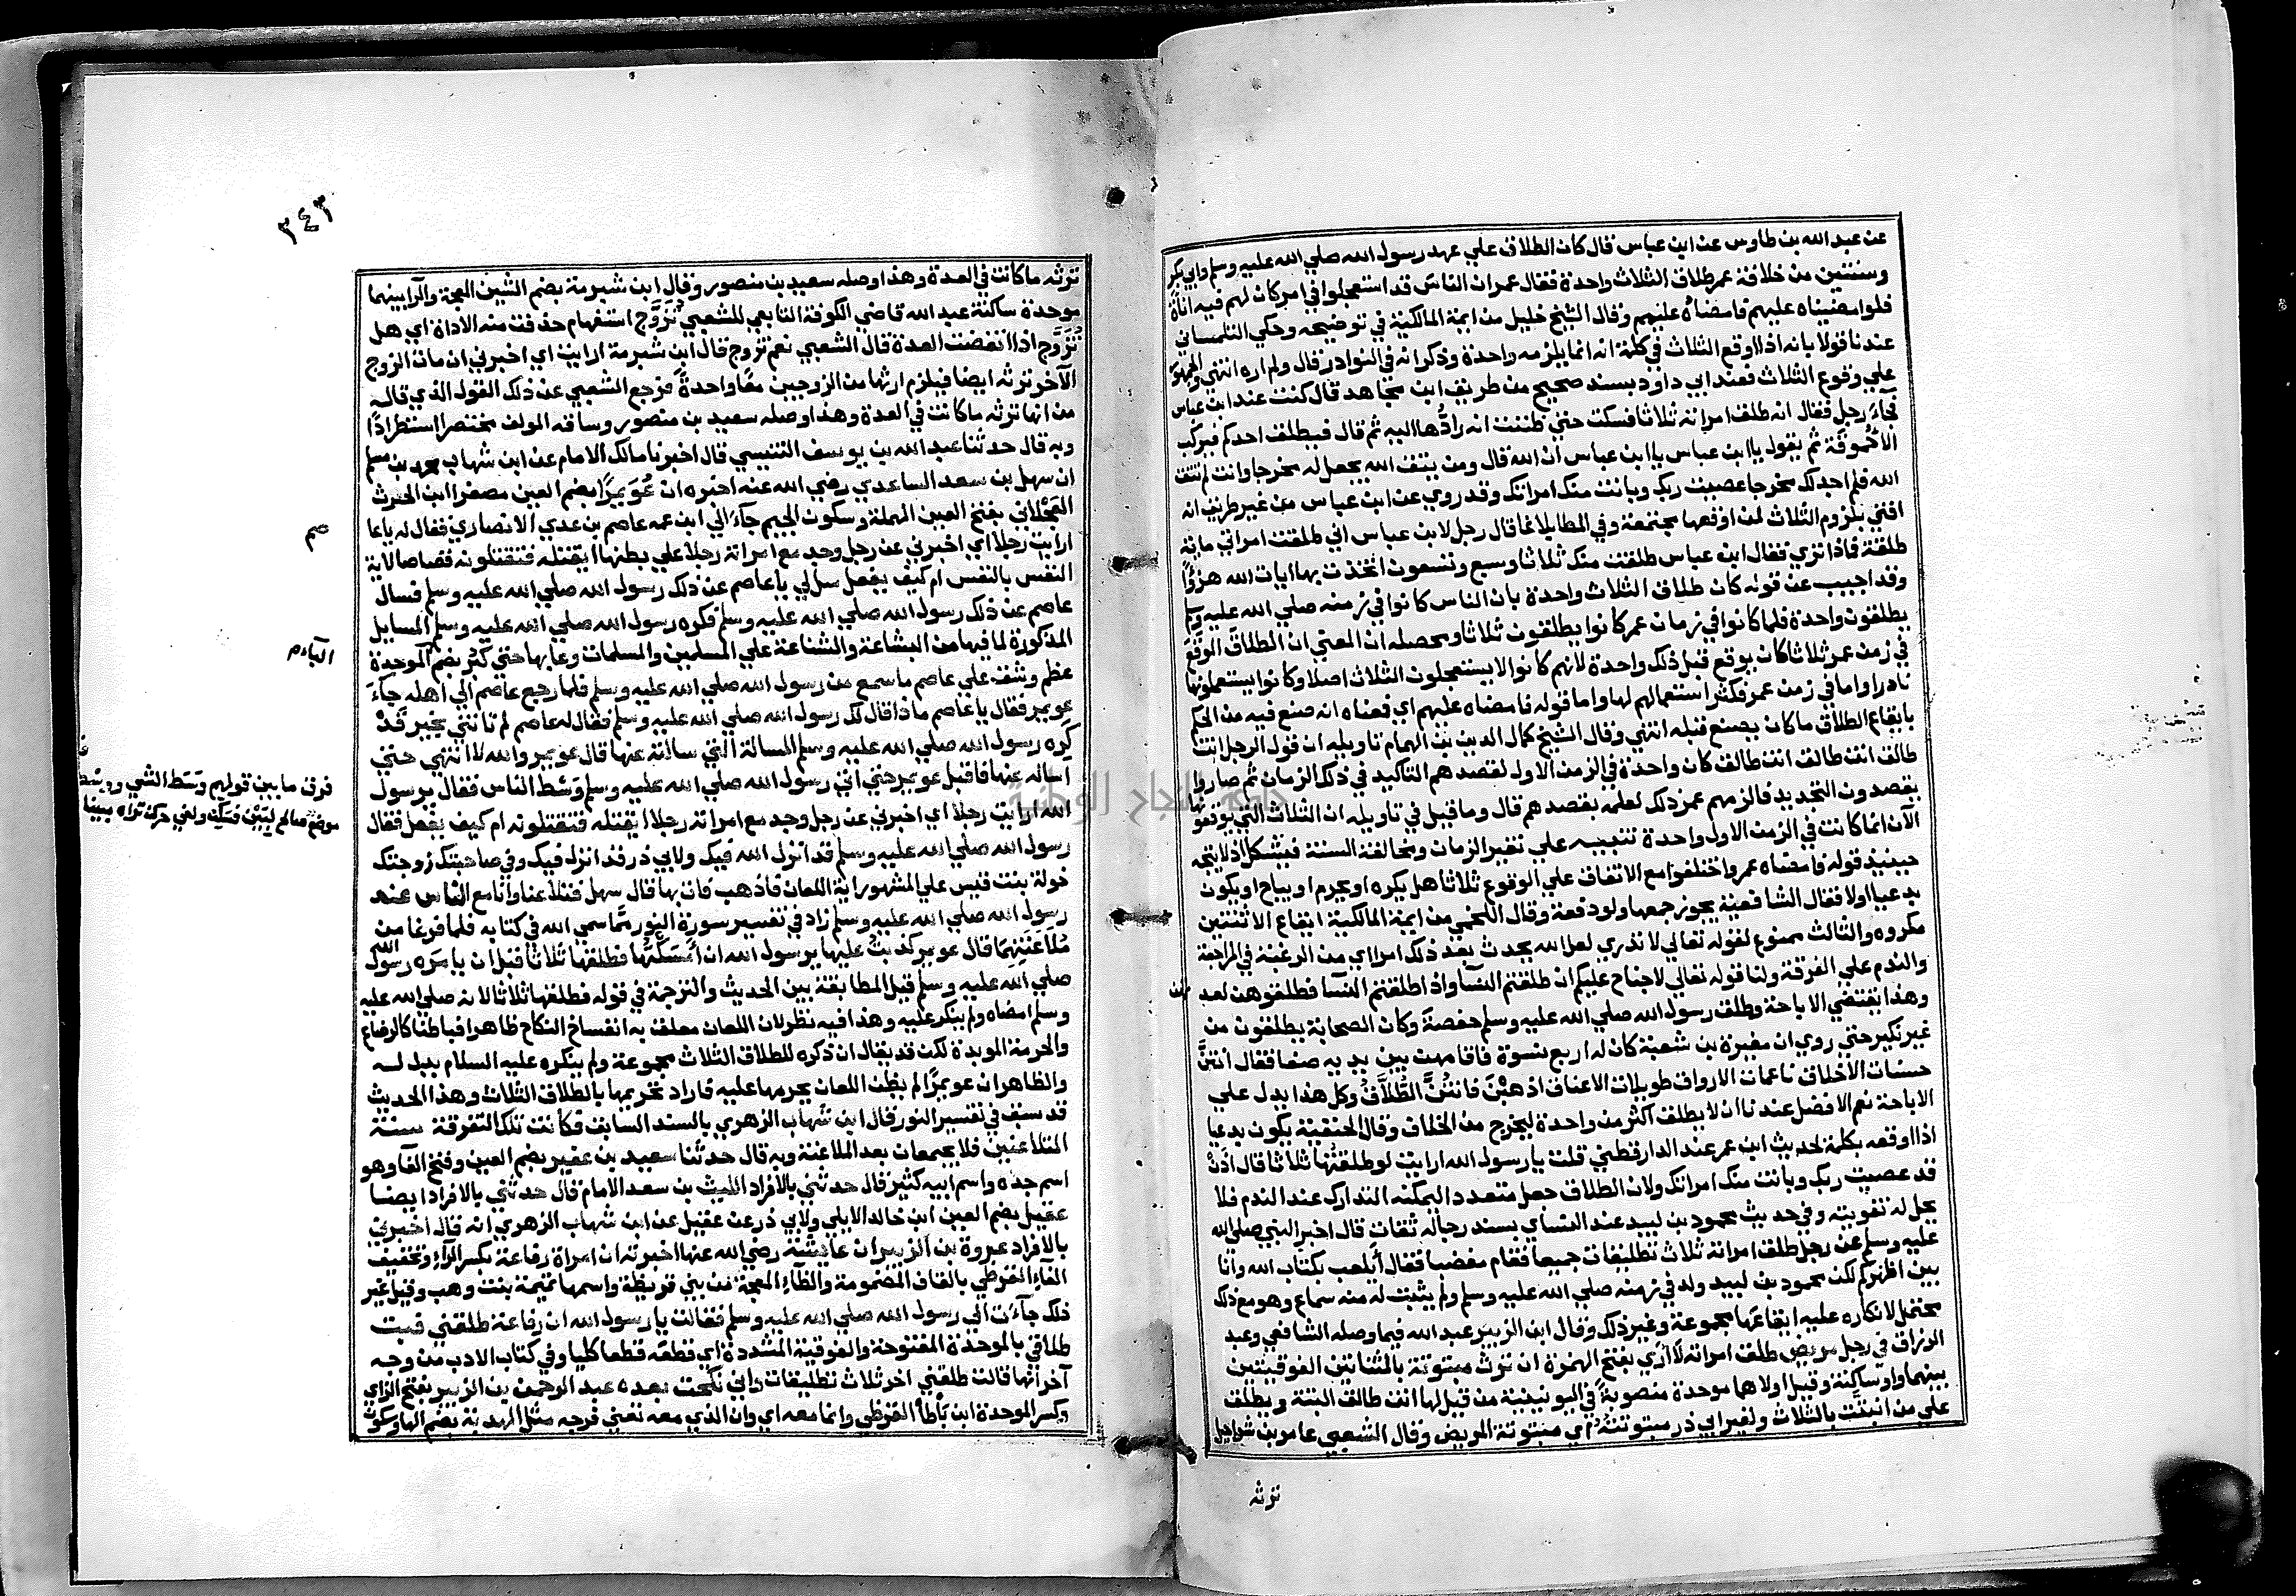 عن عبد الله بن طاوس عن ابن عباس قال كان الطلاق علي عهد رسول الله صلي الله عليه وسلم وابي بكر
وسنتين من خلافة عمر طلاق الثلاث واحدة فقال عمر ان الناس قد استعجلوا في امر كان لهم فيه اناة
فلوا مضيناه عليهم فامضاه عليهم وقال الشيخ خليل من ايمة المالكية في توضيحه وحكي التلمساني
عندنا قولا بانه اذا اوقع الثلاث في كلمة انه انما يلزمه واحدة وذكر انه في النوادر قال ولم اره انتهي والجمهور
علي وقوع الثلاث فعند ابي داود بسند صحيح من طريق ابن مجاهد قال كنت عند ابن عباس
فجاءَ رجل فقال انه طلق امراته ثلاثا فسكت حتي ظننت انه رادُّها اليه ثم قال فيطلق احدكم فيركب
الاحُموقَة ثم يقول يا ابن عباس يا ابن عباس ان الله قال ومن يتق الله يجعل له مخرجا وانت لم تتق
الله فلم اجد لك مخرجا عصيت ربك وبانت منك امراتك وقد روي عن ابن عباس من غير طريق انه
افتي بلزوم الثلاث لمن اوقعها مجتمعة وفي الموطا بلاغا قال رجل لابن عباس اني طلقت امراتي ماية
طلقة فماذا تري فقال ابن عباس طلقت منك ثلاثا وسبع وتسعون اتخذت بها ايات الله هزؤًا
وقد اجيب عن قوله كان طلاق الثلاث واحدة بان الناس كانوا في زمنه صلي الله عليه وسلم
يطلقون واحدة فلما كانوا في زمان عمر كانوا يطلقون ثلاثا ومحصله ان المعني ان الطلاق الموقع
في زمن عمر ثلاثا كان يوقع قبل ذلك واحدة لانهم كانوا لا يستعجلون الثلاث اصلا وكانوا يستعملونها
نادرا واما في زمن عمر فكثر استعمالهم لها واما قوله فامضاه عليهم اي فمعناه انه صنع فيه من الحكم
بايقاع الطلاق ما كان يصنع قبله انتهي وقال الشيخ كمال الدين بن الهمام تاويله ان قول الرجل انت
طالق انت طالق انت طالق كان واحدة في الزمن الاول لقصدهم التاكيد في ذلك الزمان ثم صاروا
يقصدون التجديد فالزمهم عمر ذلك لعلمه بقصدهم قال وما قيل في تاويله ان الثلاث التي يوقعونها
الآن انما كانت في الزمن الاول واحدة تنبيه علي تغير الزمان ومخالفة السنة فيشكل اذ لا يتجه
حينيذ قوله فامضاه عمر واختلفوا مع الاتفاق علي الوقوع ثلاثا هل يكره او يحرم او يباح او يكون
بدعيا اولا فقال الشافعية يجوز جمعها ولو دفعة وقال اللخمي من ايمة المالكية ايقاع الاثنتين
مكروه والثالث ممنوع لقوله تعالي لا تدري لعل الله يحدث بعد ذلك امرا اي من الرغبة في المراجعة
والندم علي الفرقة ولنا قوله تعالي لا جناح عليكم ان طلقتم النسآ واذا طلقتم النسآ فطلقوهن لعد
تهن
وهذا يقتضي الاباحة وطلق رسول الله صلي الله عليه وسلم حفصة وكان الصحابة يطلقون من
غير نكير حتي روي ان مغيرة بن شعبة كان له اربع نسوة فاقامهت بين يديه صفا فقال انتنَّ
حسنات الاخلاق ناعمات الارواق طويلات الاعناق اذهبْنَ فانتُنَّ الطُّلَّاقُ وكل هذا يدل علي
الاباحة نعم الافضل عندنا ان لا يطلق اكثر من واحدة ليخرج من الخلاف وقال الحنفية يكون بدعيا
اذا اوقعه بكلمة لحديث ابن عمر عند الدارقطني قلت يا رسول الله ارايت لو طلقتُها ثلاثا قال اذنْ
قد عصيت ربك وبانت منك امراتك ولان الطلاق جعل متعددا ليمكنه التدارك عند الندم فلا
يحل له تفويته وفي حديث محمود بن لبيد عند النساي بسند رجاله ثقات قال اخبر النبي صلي الله
عليه وسلم عن رجل طلق امراته ثلاث تطليقات جميعا فقام مغضبا فقال أيلعب بكتاب الله وانا
بين اظهركم لكن محمود بن لبيد ولد في زمنه صلي الله عليه وسلم ولم يثبت له منه سماع وهو مع ذلك
محتمل لانكاره عليه ايقاعَها مجموعة وغير ذلك وقال ابن الزبير عبد الله فيما وصله الشافعي وعبد
الرزاق في رجل مريض طلق امراته لا أرَي بفتح الهمزة ان ترث مبتوتة بالمثناتين الفوقيتين
بينهما واو ساكنة وقبل اولاها موحدة منصوبة في اليونينية من قيل لها انت طالق البتة ويطلق
علي من ابتَّت بالثلاث ولغير ابي ذر مبتوتتُه اي مبتوتة المريض وقال الشعبي عامر بن شراحيل
ترثه
٣٤٣
ترثه ما كانت في العدة وهذا وصله سعيد بن منصور وقال ابن شبرمة بضم الشين المعجمة والرا بينهما
موحدة ساكنة عبد الله قاضي الكوفة التابعي للشعبي تَزَوَّج استفهام حذفت منه الاداة اي هل
تُزَوَّج اذا انقضت العدة قال الشعبي نعم تزوج قال ابن شبرمة ارايت اي اخبرني ان مات الزوج
الآخر ترثه ايضا فيلزم ارثها من الزوجين معًا واحدةً فرجع الشعبي عن ذلك القول الذي قاله
من انها ترثه ما كانت في العدة وهذا وصله سعيد بن منصور وساقه المولف مختصرا استطرادًا
وبه قال حدثنا عبد الله بن يوسف التنيسي قال اخبرنا مالك الامام عن ابن شهاب محمد بن مسلم
ان سهل بن سعد الساعدي رضي الله عنه اخبره ان عُوَيمِرًا بضم العين مصغرا ابن الحرث
العَجْلاني بفتح العين المهملة وسكون الجيم جآءَ الي ابن عمه عاصم بن عدي الانصاري فقال له يا عا
صم
ارايت رجلًا اي اخبرني عن رجل وجد مع امراته رجلًا علي بطنها ايقتله فتقتلونه قصاصا لاية
النفس بالنفس ام كيف يفعل سل لي يا عاصم عن ذلك رسول الله صلي الله عليه وسلم فسال
عاصم عن ذلك رسول الله صلي الله عليه وسلم فكره رسول الله صلي الله عليه وسلم المسايل
المذكورة لما فيها من البشاعة والشناعة علي المسلمين والمسلمات وعابها حتي كَبُر بضم الموحدة
الباء م
عظم وشق علي عاصم ما سمع من رسول الله صلي الله عليه وسلم فلما رجع عاصم الي اهله جآءَ
عويمر فقال يا عاصم ماذا قال لك رسول الله صلي الله عليه وسلم فقال له عاصم لم تاتني بخير قَدْ
كَرِه رسول الله صلي الله عليه وسلم المسالة التي سالته عنها قال عويمر والله لا انتهي حتي
اساله عنها فاقبل عويمر حتي اتي رسول الله صلي الله عليه وسلم وَسَط الناس فقال يرسول
فرق ما بين قولهم وسَط الشي ووسْط
موضع صالح لِبَيْنَ فسكِّن ولفي حركن تراه مبينا
الله ارايت رجلًا اي اخبرني عن رجل وجد مع امراته رجلا ايقتله فتقتلونه ام كيف يفعل فقال
رسول الله صلي الله عليه وسلم قد انزل الله فيك ولابي ذر قد انزل فيك وفي صاحبتك زوجتك
خولة بنت قيس علي المشهور اية اللعان فاذهب فات بها قال سهل فتلاعنا وانا مع الناس عند
رسول الله صلي الله عليه وسلم زاد في تفسير سورة النور بما سمي الله في كتابه فلما فرغا من
مُلاعَنتِهِمَا قال عويمر كذبتُ عليها يرسول الله ان أمْسَكتُها فطلقها ثلاثا قبل ان يامره رسول الله
صلي الله عليه وسلم قيل المطابقة بين الحديث والترجمة في قوله فطلقها ثلاثا لانه صلي الله عليه
وسلم امضاه ولم ينكر عليه وهذا فيه نظر لان اللعان معلق به انفساخ النكاح ظاهرا فباطنا كالرضاع
والحرمة الموبدة لكن قد يقال ان ذكره للطلاق الثلاث مجموعة ولم ينكره عليه السلام يدل له
والظاهر ان عويمرًا لم يظن اللعان يحرمها عليه فاراد تحريمها بالطلاق الثلاث وهذا الحديث
قد سبق في تفسير النور قال ابن شهاب الزهري بالسند السابق فكانت تلك التفرقة سنة
المتلاعنين فلا يجتمعان بعد الملاعنة وبه قال حدثنا سعيد بن عفير بضم العين وفتح الفا وهو
اسم جده واسم ابيه كثير قال حدثني بالافراد الليث بن سعد الامام قال حدثني بالافراد ايضا
عقيل بضم العين ابن خالد الايلي ولابي ذر عن عقيل عن ابن شهاب الزهري انه قال اخبرني
بالافراد عروة بن الزبير ان عايشة رضي الله عنها اخبرته ان امراة رفاعة بكسر الرآءِ وتخفيف
الفآءِ القرظي بالقاف المضمومة والظآءِ المعجمة من بني قريظة واسمها تميمة بنت وهب وقيل غير
ذلك جآءَت الي رسول الله صلي الله عليه وسلم فقالت يا رسول الله ان رفاعة طلقني فبت
طلاقي بالموحدة المفتوحة والفوقية المشددة اي قطعه قطعا كليا وفي كتاب الادب من وجه
آخر انها قالت طلقني اخر ثلاث تطليقات واني نكحت بعده عبد الرحمن بن الزبير بفتح الزاي
وكسر الموحدة ابن باطا القرظي وانما معه اي وان الذي معه تعني فرجه مثل الهدبة بضم الها وسكون